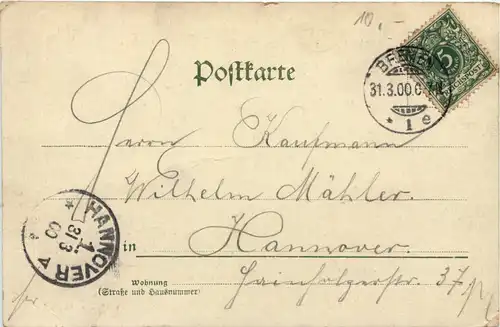 10,-
Postkarte
BREMEN
31.3.00.
* 1 e
5
Herrn Kaufmann
Wilhelm Mähler.
HANNOVER
31/3
00
1.
in Hannover.
Wohnung
(Straße und Hausnummer)
37